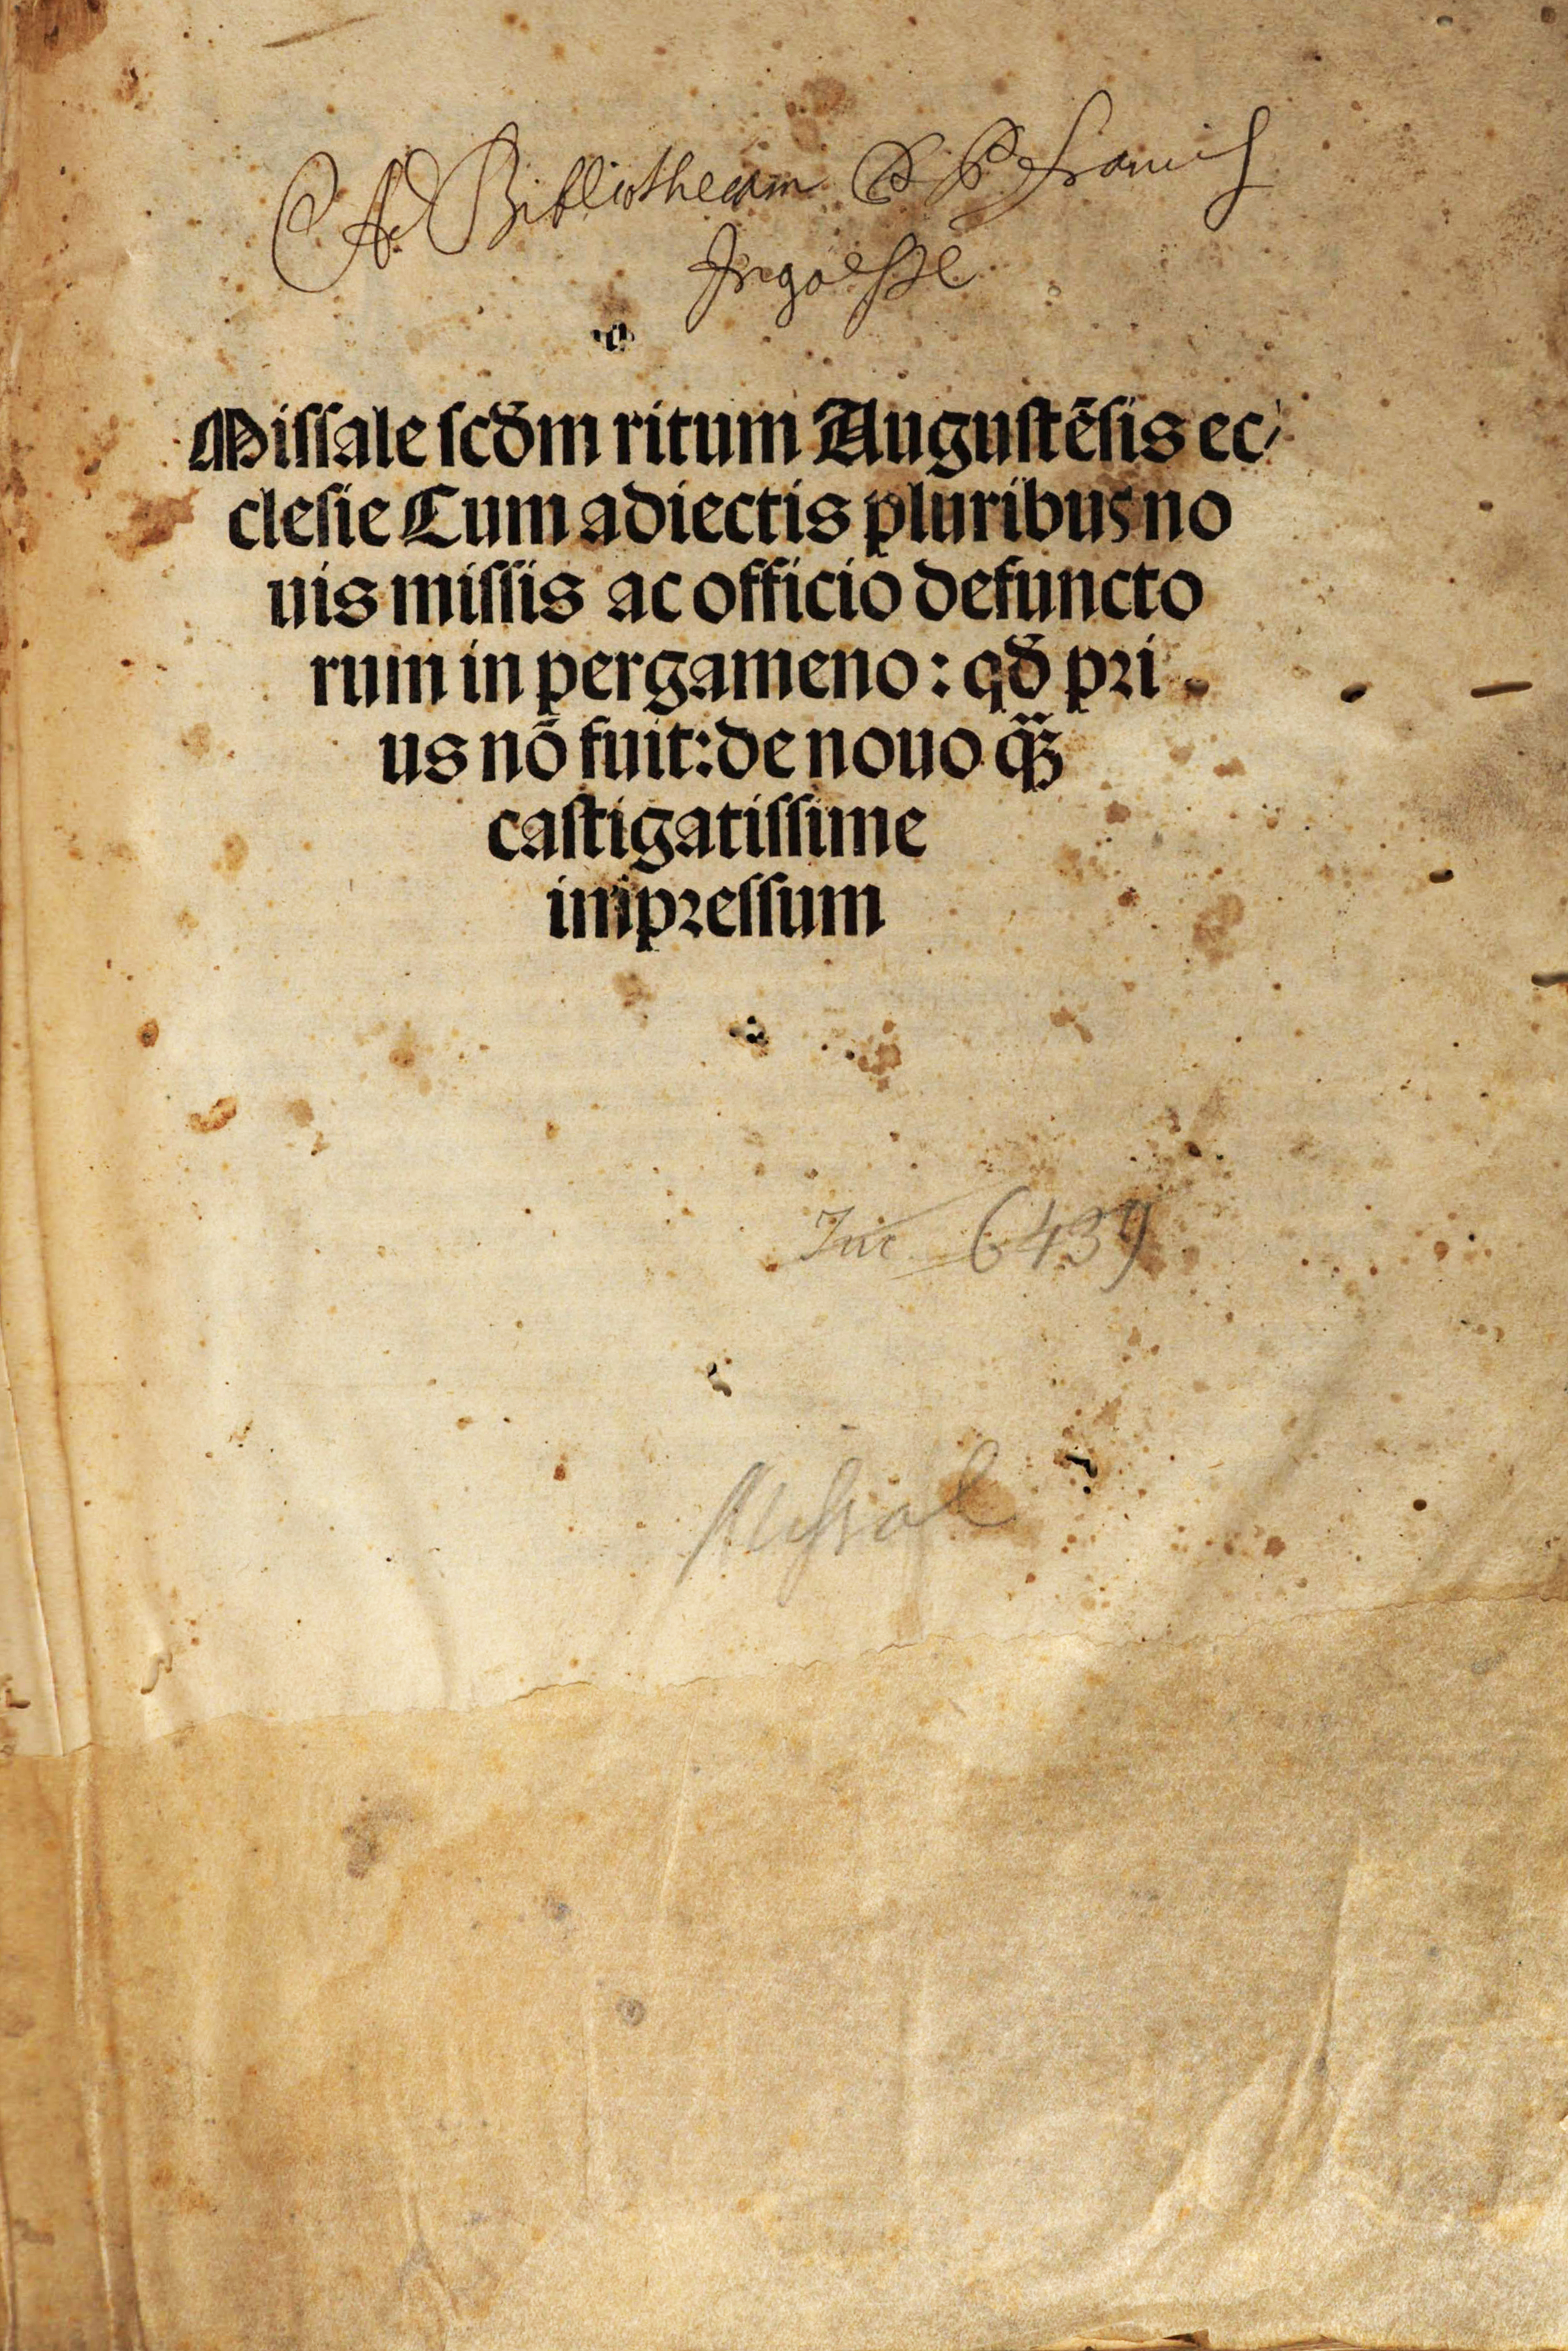 Ad Bibliothecam P P Francis
Missale scd̄m ritum Augustēsis ec⸗
clesie Cum adiectis pluribus no
uis missis ac officio defuncto
rum in pergameno: qd̄ pri
us nō fuit: de nouo qꝫ
castigatissime
impressum
Inc 6439
Missal